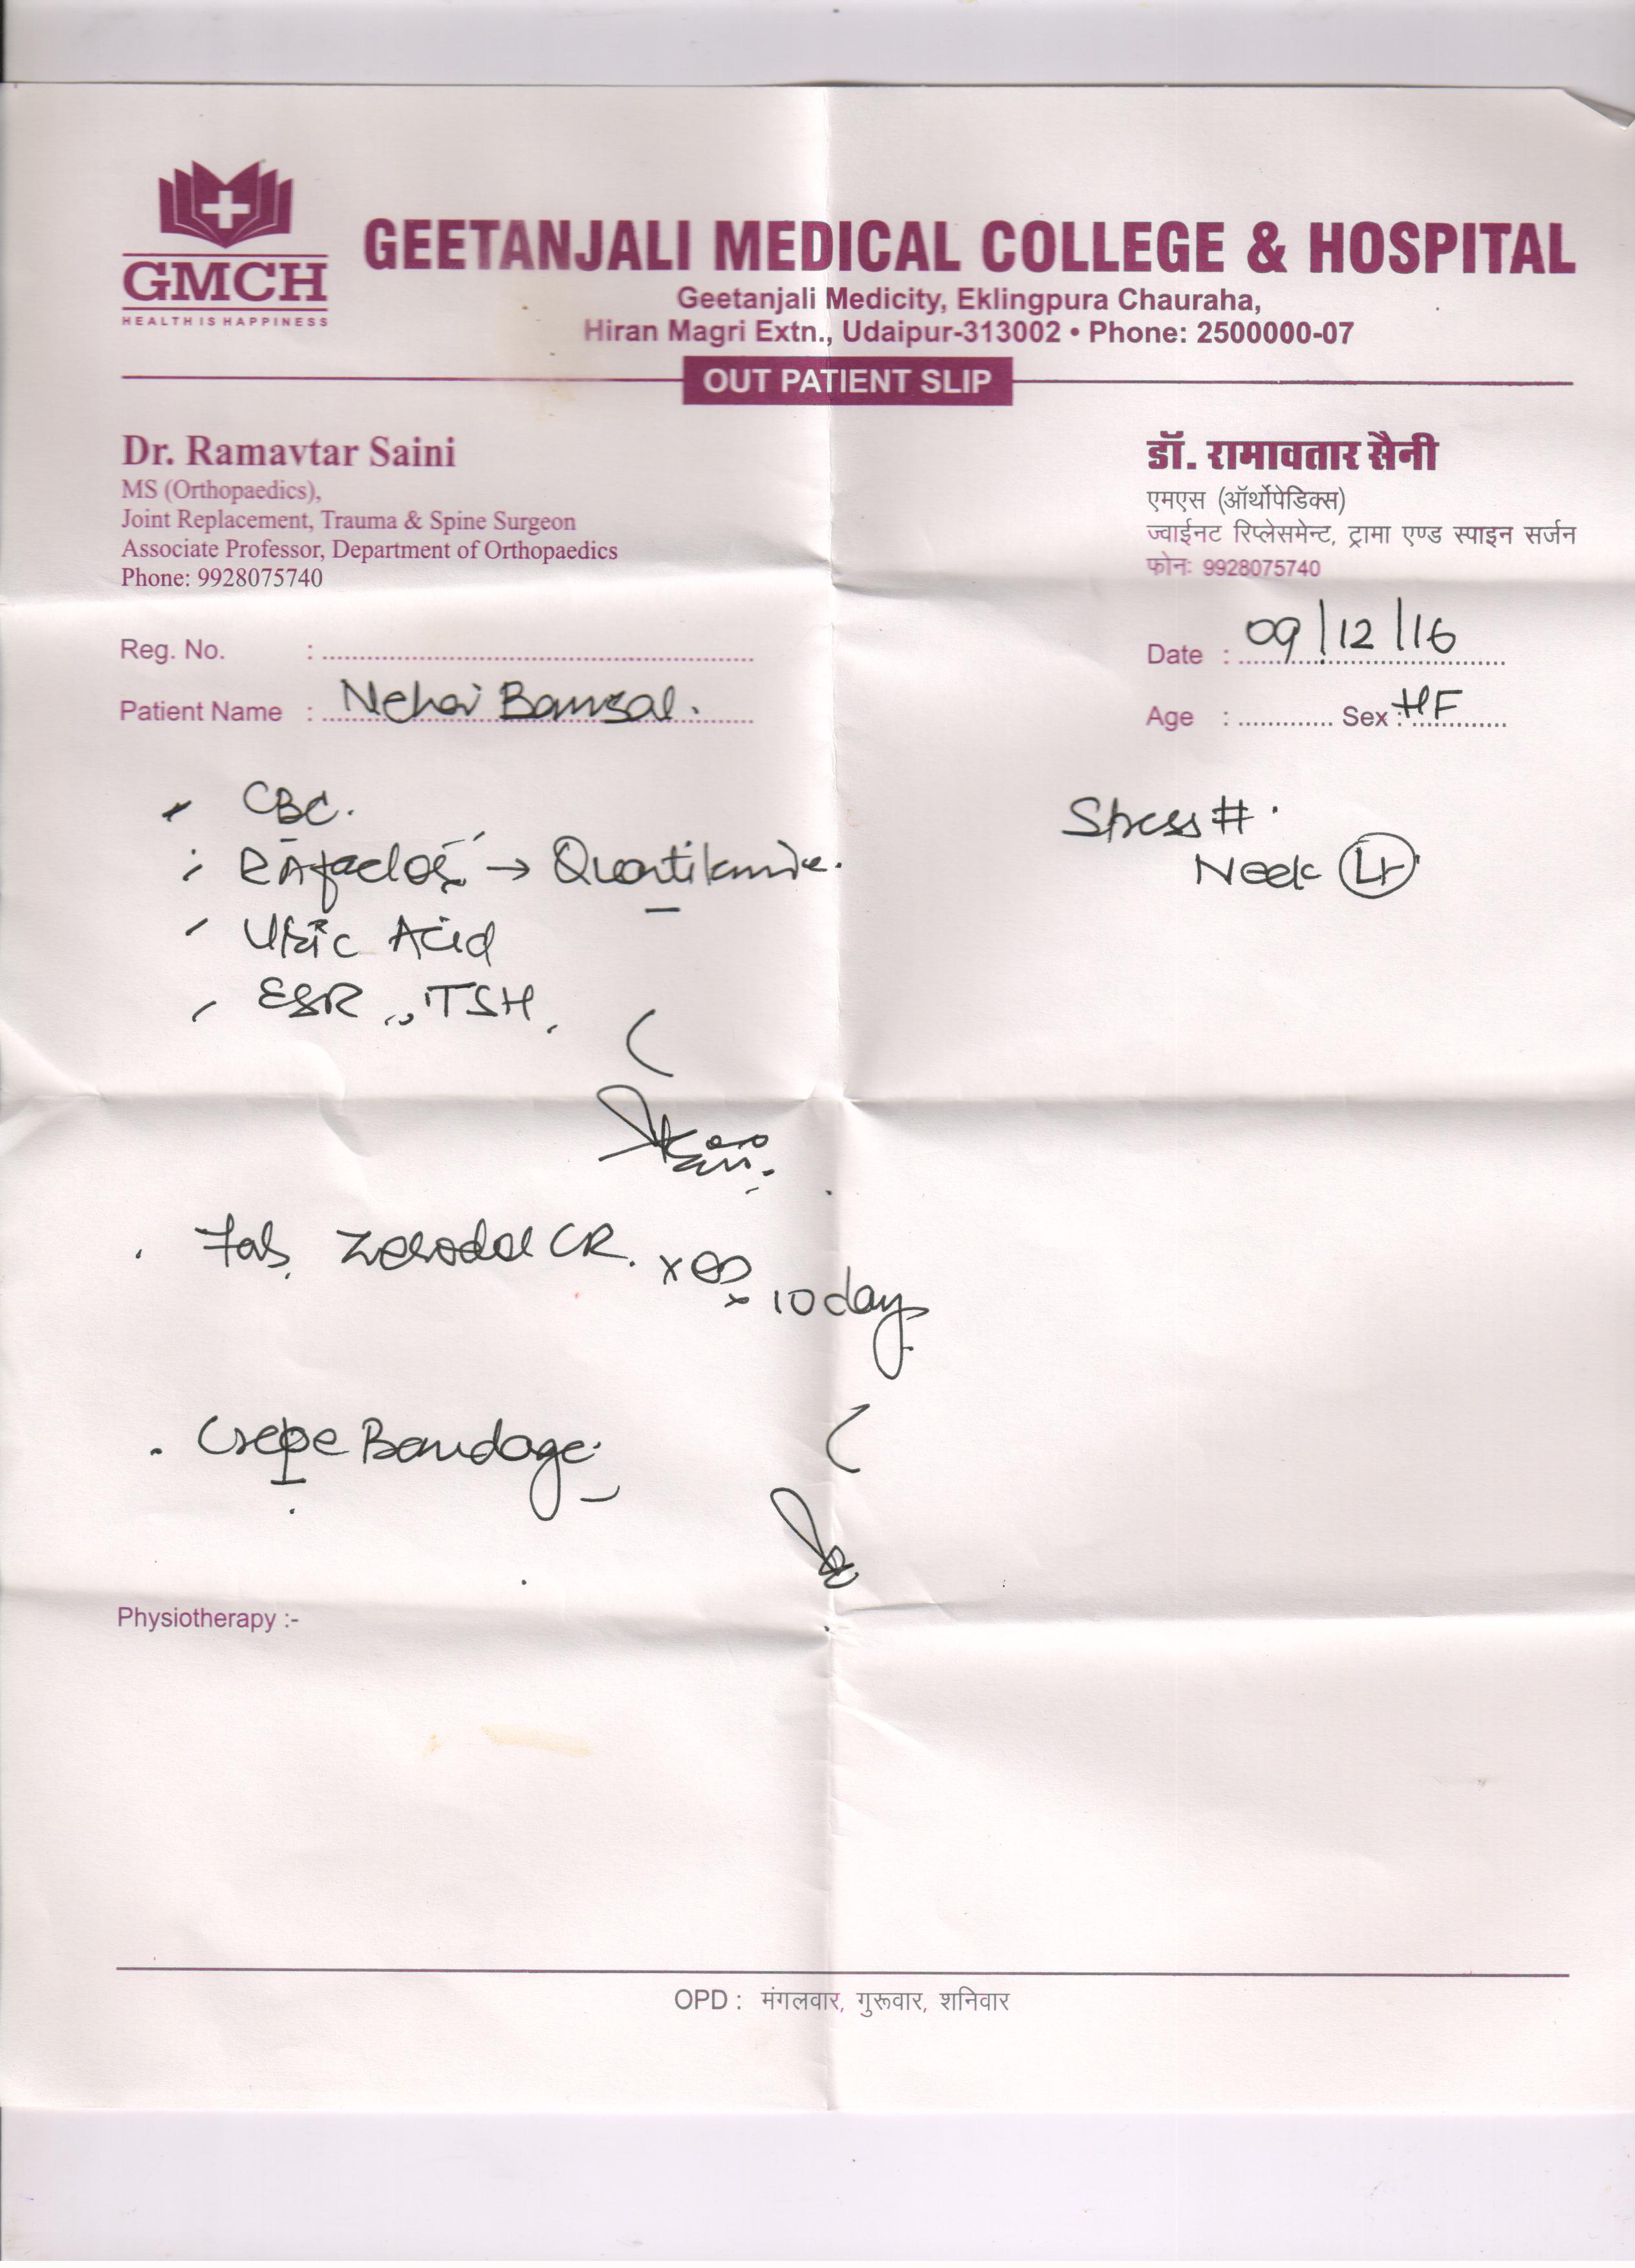 GMCH
HEALTH IS HAPPINESS
GEETANJALI MEDICAL COLLEGE & HOSPITAL
Geetanjali Medicity, Eklingpura Chauraha,
Hiran Magri Extn., Udaipur-313002 • Phone: 2500000-07
OUT PATIENT SLIP
Dr. Ramavtar Saini
MS (Orthopaedics),
Joint Replacement, Trauma & Spine Surgeon
Associate Professor, Department of Orthopaedics
Phone: 9928075740
डॉ. रामावतार सैनी
एमएस (ऑर्थोपेडिक्स)
ज्वाईनट रिप्लेसमेन्ट, ट्रामा एण्ड स्पाइन सर्जन
फोन: 9928075740
Reg. No. :
Date : 09/12/16
Patient Name : Neha Bansal.
Age : Sex : F
CBC.
RA factor →
Uric Acid
ESR, TSH,
Stress #.
Neck Lt
Tab. Zerodol CR. x OD
x 10 days
Crepe Bandage
Physiotherapy :-
OPD : मंगलवार, गुरूवार, शनिवार